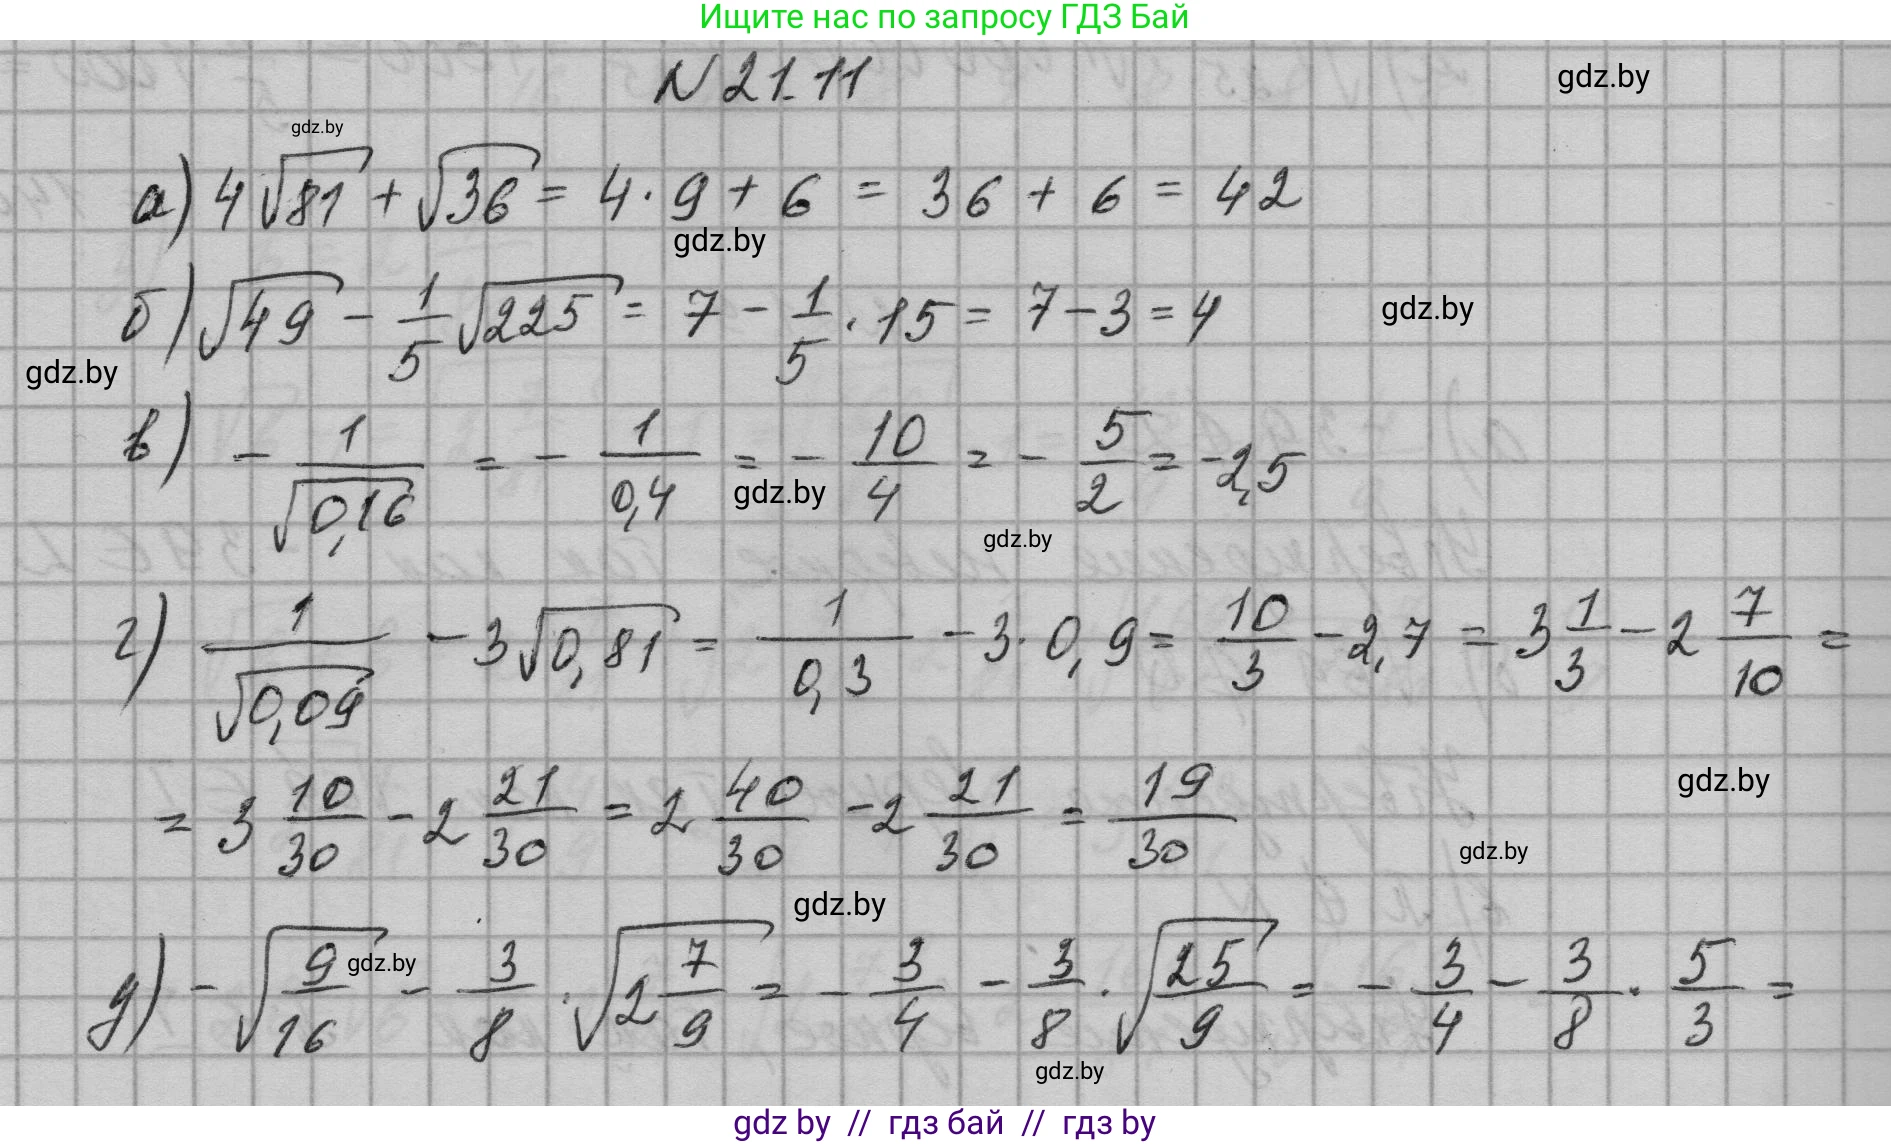 Ищите нас по запросу ГДЗ Бай
N 21.11
gdz.by
gdz.by
а) 4√81 + √36 = 4 · 9 + 6 = 36 + 6 = 42
gdz.by
б) √49 - 1/5 √225 = 7 - 1/5 · 15 = 7 - 3 = 4
gdz.by
gdz.by
в) - 1/√0,16 = - 1/0,4 = - 10/4 = - 5/2 = -2,5
gdz.by
gdz.by
г) 1/√0,09 - 3√0,81 = 1/0,3 - 3 · 0,9 = 10/3 - 2,7 = 3 1/3 - 2 7/10 =
= 3 10/30 - 2 21/30 = 2 40/30 - 2 21/30 = 19/30
gdz.by
gdz.by
gdz.by
д) - √(9/16) - 3/8 · √(2 7/9) = - 3/4 - 3/8 · √(25/9) = - 3/4 - 3/8 · 5/3 =
gdz.by
gdz.by
gdz by // гдз бай // гдз by